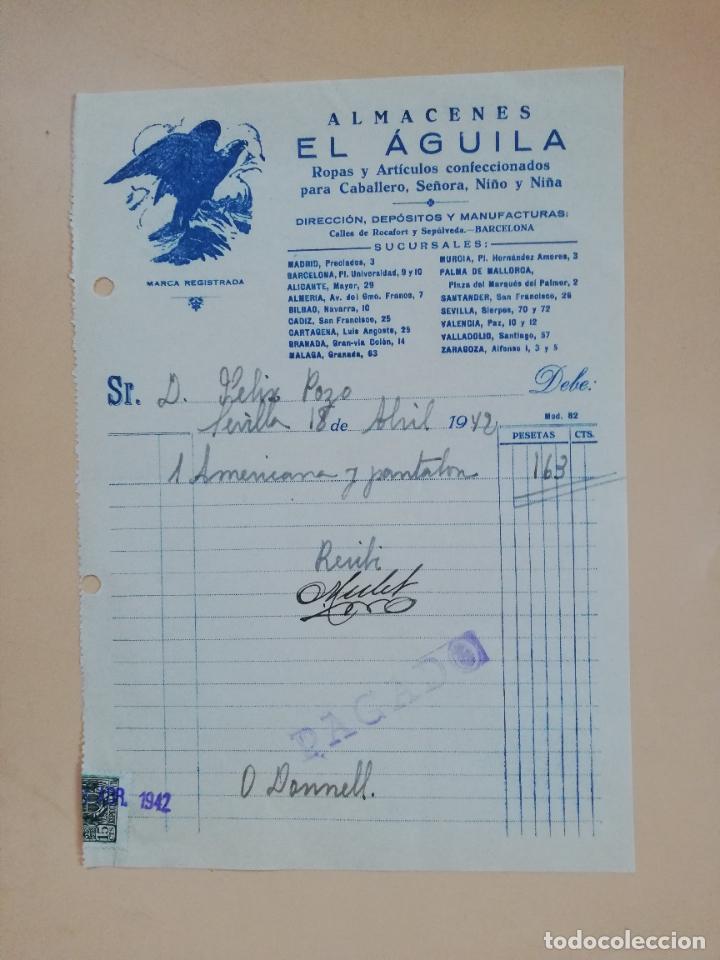 ALMACENES
EL ÁGUILA
Ropas y Artículos confeccionados
para Caballero, Señora, Niño y Niña
DIRECCIÓN, DEPÓSITOS Y MANUFACTURAS:
Calles de Rocafort y Sepúlveda.—BARCELONA
SUCURSALES:
MARCA REGISTRADA
MADRID, Preciados, 3
BARCELONA, Pl. Universidad, 9 y 10
ALICANTE, Mayor, 29
ALMERIA, Av. del Gmo. Franco, 7
BILBAO, Navarra, 10
CADIZ, San Francisco, 25
CARTAGENA, Luis Angosto, 25
GRANADA, Gran-vía Colón, 14
MALAGA, Granada, 63
MURCIA, Pl. Hernández Amores, 3
PALMA DE MALLORCA,
Plaza del Marqués del Palmer, 2
SANTANDER, San Francisco, 26
SEVILLA, Sierpes, 70 y 72
VALENCIA, Paz, 10 y 12
VALLADOLID, Santiago, 57
ZARAGOZA, Alfonso I, 3 y 5
Sr. D. Felix Pozo Debe:
Sevilla 18 de Abril 1942
Mod. 82
PESETAS CTS.
1 Americana y pantalon 163
Recibi
PAGADO
O Donnell.
ABR. 1942
15 CTS
todocoleccion
todocoleccion.net